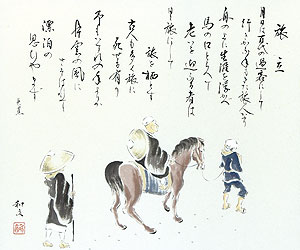 旅立
月日は百代の過客にして
行きかふ年も又旅人なり
舟の上に生涯を浮べ
馬の口とらへて
老を迎ふる者は
日々旅にして
旅を栖とす
古人も多く旅に
死せる有り
予もいづれの年よりか
片雲の風に
さそはれて
漂泊の
思ひやまず